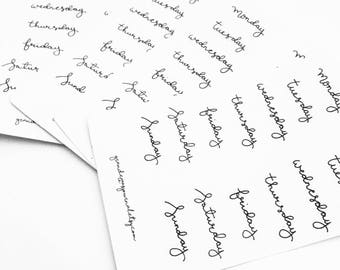 wednesday
thursday
friday
Satur
Sund
thursday
friday
Satur
S
wednesday
thursday
friday
Satu
tuesday
wednesday
thursday
friday
monday
tuesday
wednesday
thursday
friday
Saturday
Sunday
monday
tuesday
wednesday
thursday
friday
Saturday
Sunday